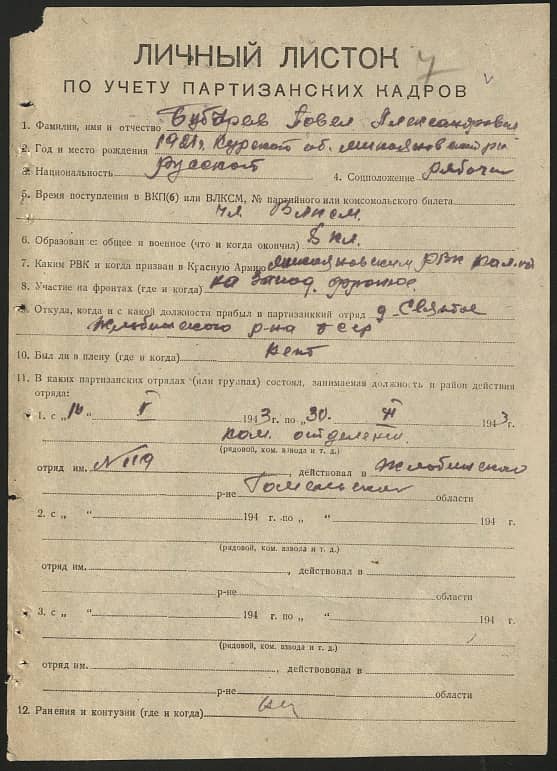 ЛИЧНЫЙ ЛИСТОК 7
ПО УЧЕТУ ПАРТИЗАНСКИХ КАДРОВ
1. Фамилия, имя и отчество Бубырев Павел Александрович
2. Год и место рождения 1921 г. Курской об.
3. Национальность русский 4. Соцположение рабочий
5. Время поступления в ВКП(б) или ВЛКСМ, № партийного или комсомольского билета
чл ВЛКСМ.
6. Образование: общее и военное (что и когда окончил) 5 кл.
7. Каким РВК и когда призван в Красную Армию РВК
8. Участие на фронтах (где и когда) на Запад. фронте.
9. Откуда, когда и с какой должности прибыл в партизанский отряд д. Святое
Жлобинского р-на БССР
10. Был ли в плену (где и когда) нет
11. В каких партизанских отрядах (или группах) состоял, занимаемая должность и район действия
отряда:
1. с „ 16 “ V 1943 г. по „ 30. “ 1943 г.
ком. отделения.
(рядовой, ком. взвода и т. д.)
отряд им. № 119 , действовал в Жлобинском
р-не Гомельской области
2. с „ “ 194 г. по „ “ 194 г.
(рядовой, ком. взвода и т. д.)
отряд им. , действовал в
р-не области
3. с „ “ 194 г. по „ “ 194 г.
(рядовой, ком. взвода и т. д.)
отряд им. , действововал в
р-не области
12. Ранения и контузии (где и когда)